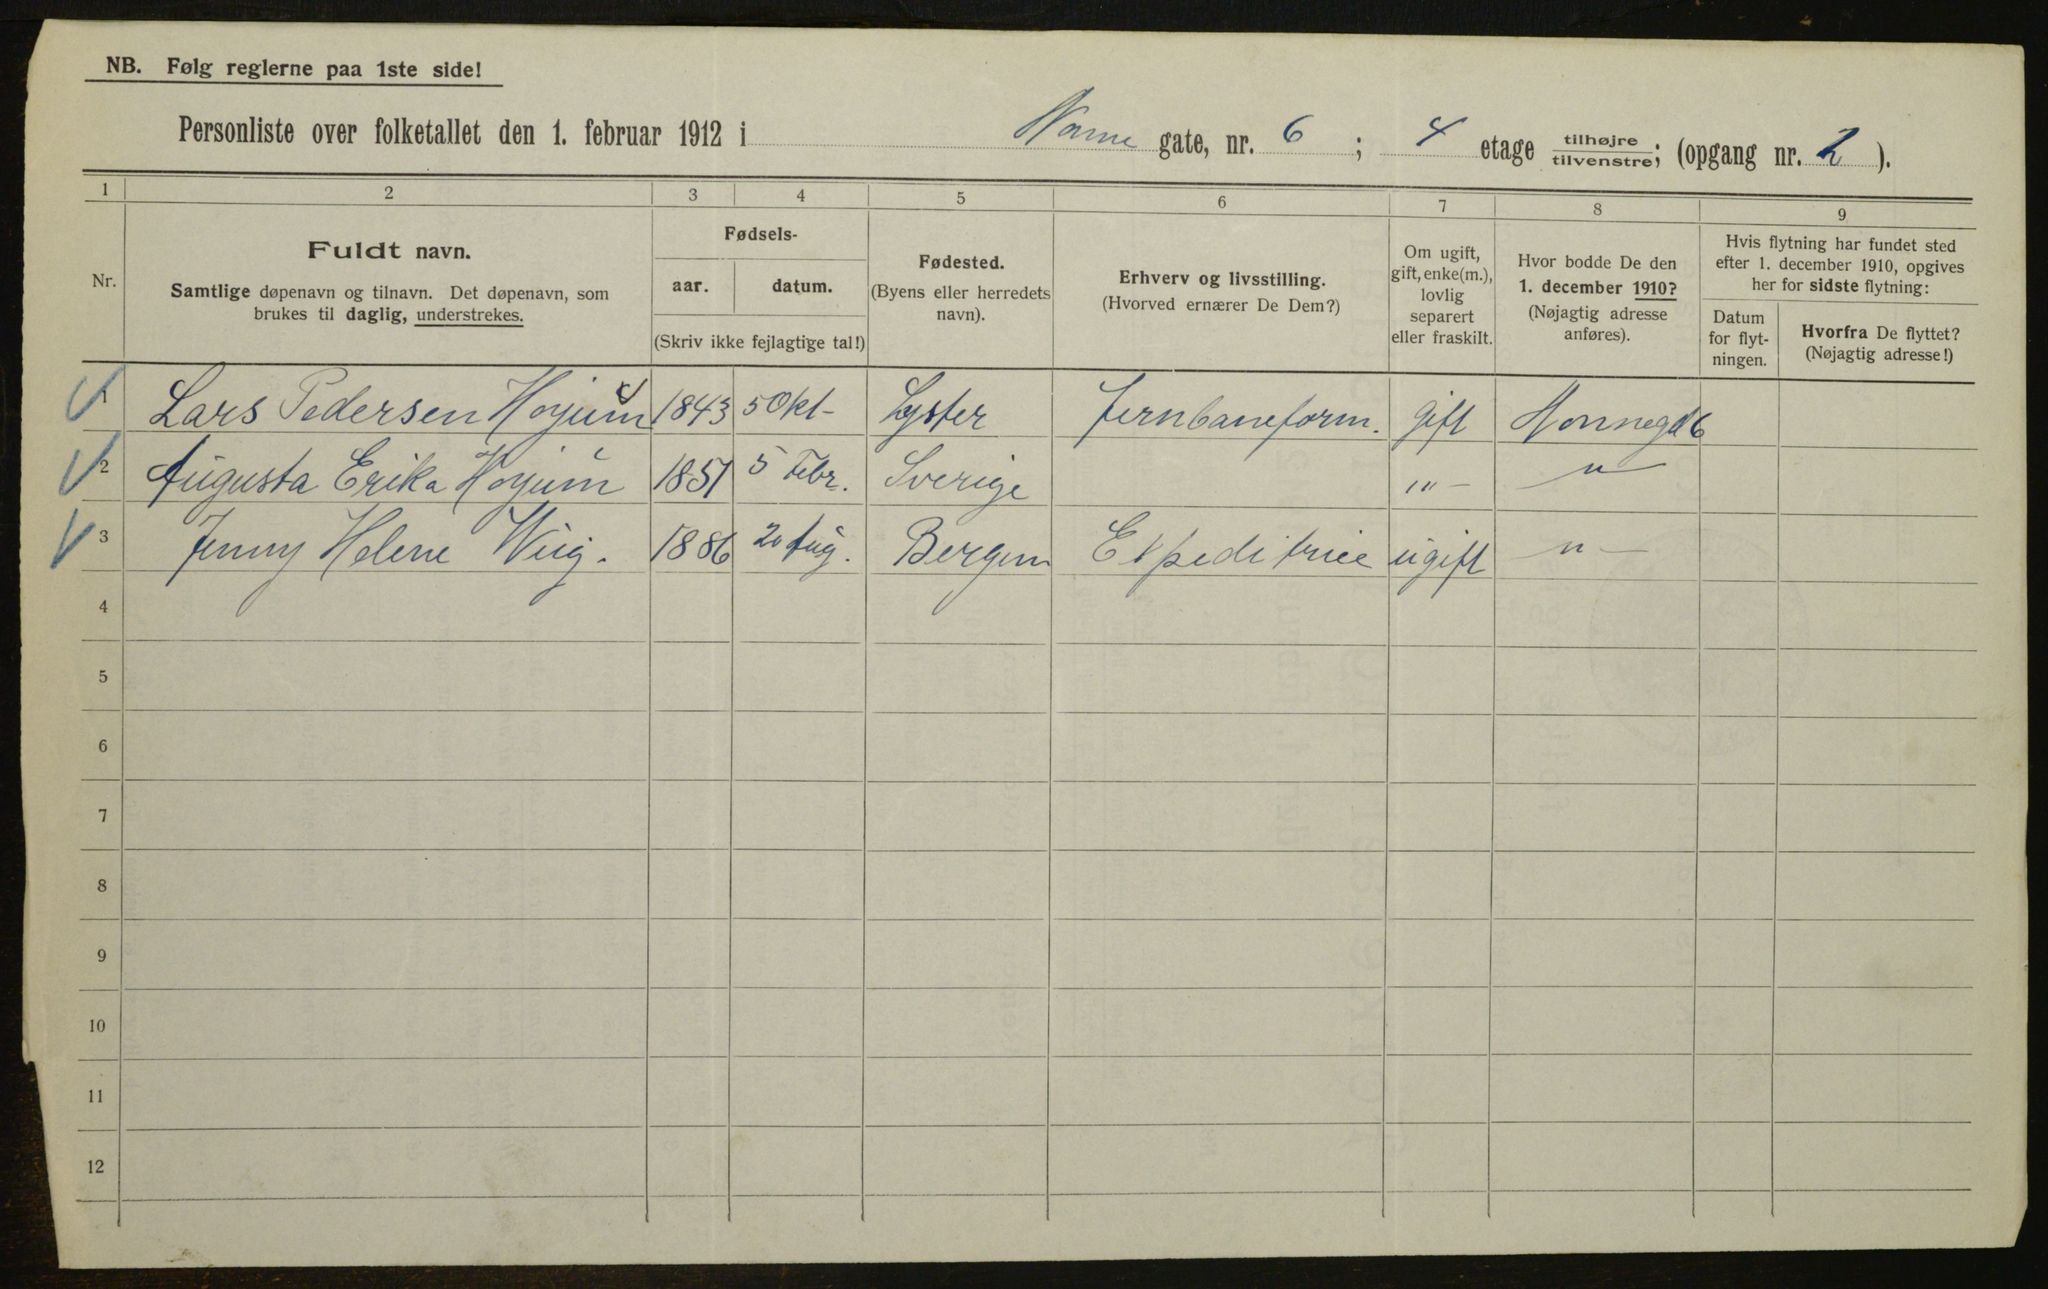 NB. Følg reglerne paa 1ste side!
Personliste over folketallet den 1. februar 1912 i Norne gate, nr. 6 ; 4 etage tilhøjre tilvenstre; (opgang nr. 2 ).
1 2 3 4 5 6 7 8 9
Nr.
Fuldt navn.
Samtlige døpenavn og tilnavn. Det døpenavn, som
brukes til daglig, understrekes.
Fødsels-
aar. datum.
(Skriv ikke fejlagtige tal!)
Fødested.
(Byens eller herredets
navn).
Erhverv og livsstilling.
(Hvorved ernærer De Dem?)
Om ugift,
gift, enke(m.),
lovlig
separert
eller fraskilt.
Hvor bodde De den
1. december 1910?
(Nøjagtig adresse
anføres).
Hvis flytning har fundet sted
efter 1. december 1910, opgives
her for sidste flytning:
Datum
for flyt-
ningen.
Hvorfra De flyttet?
(Nøjagtig adresse!)
1 Lars Pedersen Hoyum 1843 5 Okt- Lyster Jernbaneform. gift Nornegd 6
2 Augusta Erika Hoyum 1851 5 Febr. Sverige "" - " -
3 Jenny Helene Wiig. 1886 20 Aug. Bergen Expeditrice ugift " -
4
5
6
7
8
9
10
11
12